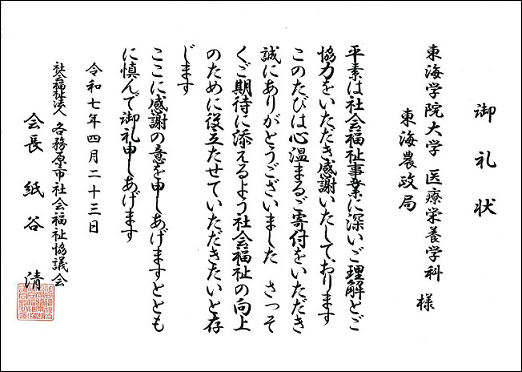 御礼状
東海学院大学 医療栄養学科
東海農政局
様
平素は社会福祉事業に深いご理解とご
協力をいただき感謝いたしております
このたびは心温まるご寄付をいただき
誠にありがとうございました さっそ
くご期待に添えるよう社会福祉の向上
のために役立たせていただきたいと存
じます
ここに感謝の意を申しあげますととも
に慎んで御礼申しあげます
令和七年四月二十三日
社会福祉法人 各務原市社会福祉協議会
会長 紙谷 清